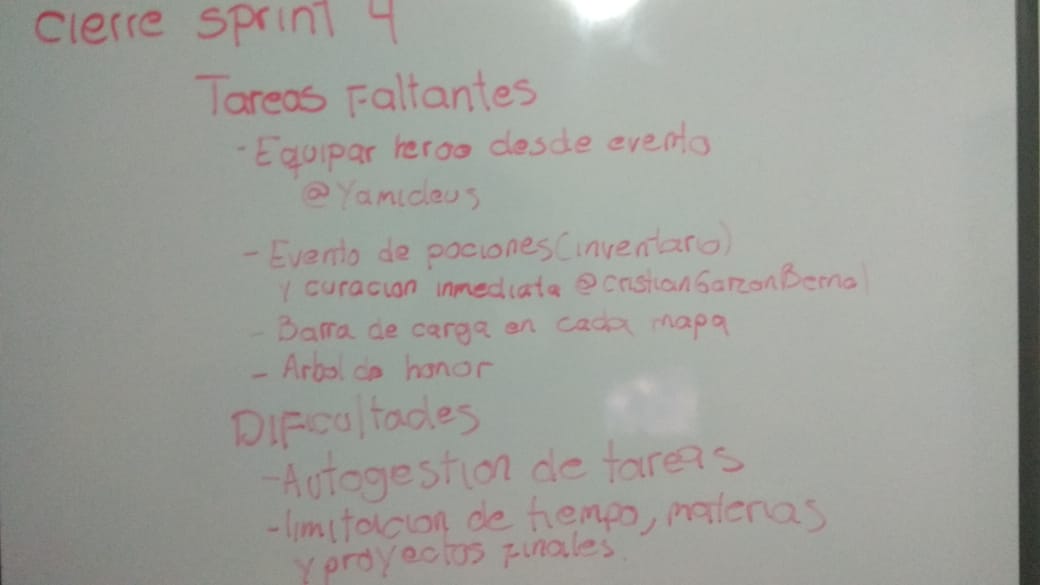 Cierre sprint 4
Tareas Faltantes
- Equipar heroo desde evento
@Yamideus
- Evento de pociones(inventario)
y curacion inmediata @CristianGarzonBernal
- Barra de carga en cada mapa
- Arbol de honor
Dificultades
- Autogestion de tareas
- limitacion de tiempo, materias
y proyectos finales.